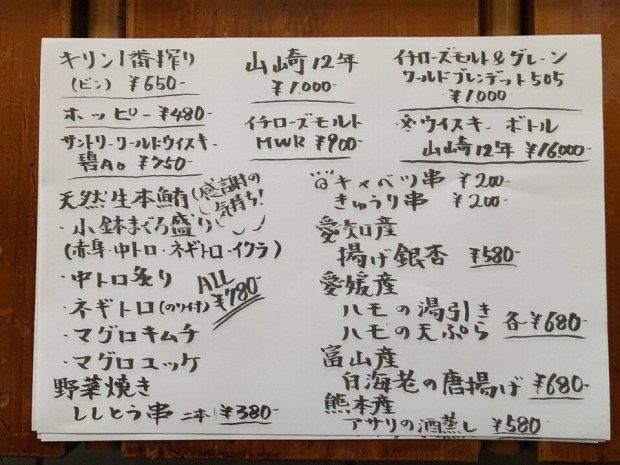 キリン1番搾り
(ビン) ¥650-
ホッピー ¥480-
サントリーワールドウイスキー
碧Ao ¥750-
山崎12年
¥1,000-
イチローズモルト
MWR ¥900-
イチローズモルト&グレーン
ワールドブレンデット505
¥1,000-
ウイスキーボトル
山崎12年 ¥16,000-
天然生本鮪(感謝の
気持ち!
・小鉢まぐろ盛り
(赤身・中トロ・ネギトロ・イクラ)
・中トロ炙り
・ネギトロ(のり付)
・マグロキムチ
・マグロユッケ
ALL
¥780-
野菜焼き
ししとう串 二本 ¥380-
キャベツ串 ¥200-
きゅうり串 ¥200-
愛知産
揚げ銀杏 ¥580-
愛媛産
ハモの湯引き
ハモの天ぷら
各¥680-
富山産
白海老の唐揚げ ¥680-
熊本産
アサリの酒蒸し ¥580-